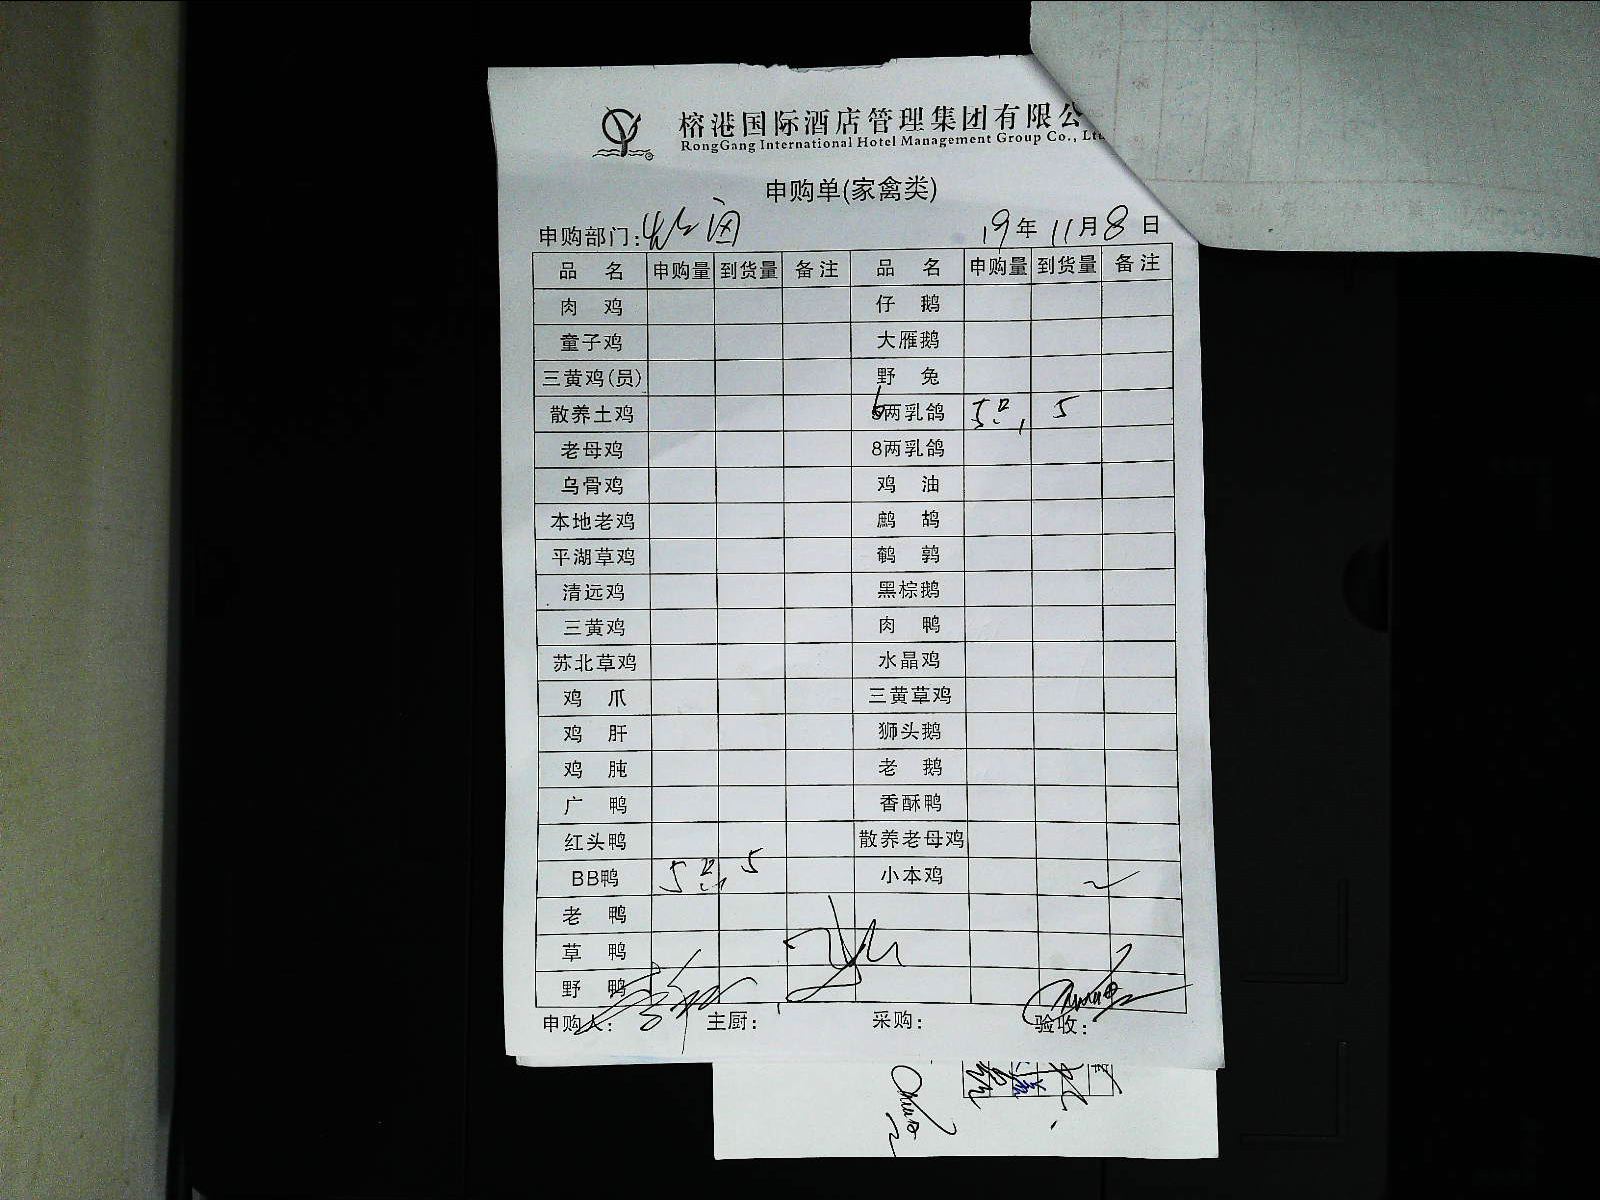 榕港国际酒店管理集团有限公
RongGang International Hotel Management Group Co., Ltd
申购单(家禽类)
申购部门: 19年 11月 8日
品 名 申购量 到货量 备注 品 名 申购量 到货量 备注
肉 鸡 仔 鹅
童子鸡 大雁鹅
三黄鸡(员) 野 兔
散养土鸡 6两乳鸽 5只 5
老母鸡 8两乳鸽
乌骨鸡 鸡 油
本地老鸡 鹧 鸪
平湖草鸡 鹌 鹑
清远鸡 黑棕鹅
三黄鸡 肉 鸭
苏北草鸡 水晶鸡
鸡 爪 三黄草鸡
鸡 肝 狮头鹅
鸡 肫 老 鹅
广 鸭 香酥鸭
红头鸭 散养老母鸡
BB鸭 5只 5 小本鸡
老 鸭
草 鸭
野 鸭
申购人: 主厨: 采购: 验收: